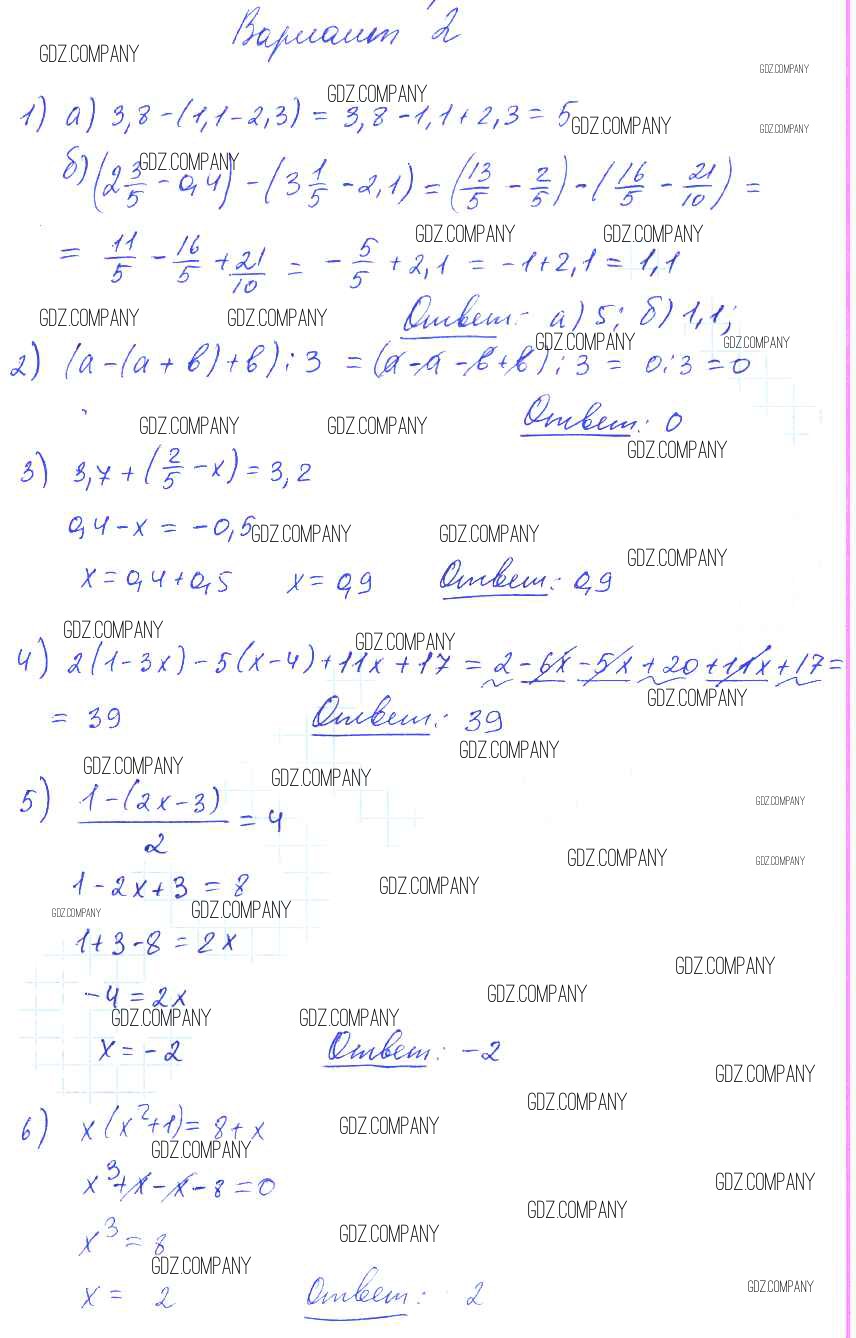 Вариант 2
GDZ.COMPANY
GDZ.COMPANY
GDZ.COMPANY
1) а) 3,8 - (1,1 - 2,3) = 3,8 - 1,1 + 2,3 = 5
GDZ.COMPANY GDZ.COMPANY
GDZ.COMPANY
б) (2 3/5 - 0,4) - (3 1/5 - 2,1) = (13/5 - 2/5) - (16/5 - 21/10) =
GDZ.COMPANY GDZ.COMPANY
= 11/5 - 16/5 + 21/10 = - 5/5 + 2,1 = -1 + 2,1 = 1,1
GDZ.COMPANY GDZ.COMPANY
Ответ: а) 5; б) 1,1;
GDZ.COMPANY GDZ.COMPANY
2) (а - (а + в) + в) : 3 = (а - а - в + в) : 3 = 0 : 3 = 0
GDZ.COMPANY GDZ.COMPANY
Ответ: 0
GDZ.COMPANY
3) 3,7 + (2/5 - х) = 3,2
0,4 - х = -0,5
GDZ.COMPANY GDZ.COMPANY
GDZ.COMPANY
х = 0,4 + 0,5 х = 0,9 Ответ: 0,9
GDZ.COMPANY
GDZ.COMPANY
4) 2(1 - 3х) - 5(х - 4) + 11х + 17 = 2 - 6х - 5х + 20 + 11х + 17 =
GDZ.COMPANY
= 39 Ответ: 39
GDZ.COMPANY
GDZ.COMPANY GDZ.COMPANY
5) 1 - (2х - 3) / 2 = 4
GDZ.COMPANY
GDZ.COMPANY GDZ.COMPANY
1 - 2х + 3 = 8
GDZ.COMPANY
GDZ.COMPANY GDZ.COMPANY
1 + 3 - 8 = 2х
GDZ.COMPANY
-4 = 2х
GDZ.COMPANY
GDZ.COMPANY GDZ.COMPANY
х = -2 Ответ: -2
GDZ.COMPANY
GDZ.COMPANY
6) х(х² + 1) = 8 + х
GDZ.COMPANY
GDZ.COMPANY
х³ + х - х - 8 = 0
GDZ.COMPANY
GDZ.COMPANY
х³ = 8
GDZ.COMPANY
GDZ.COMPANY
х = 2 Ответ: 2
GDZ.COMPANY